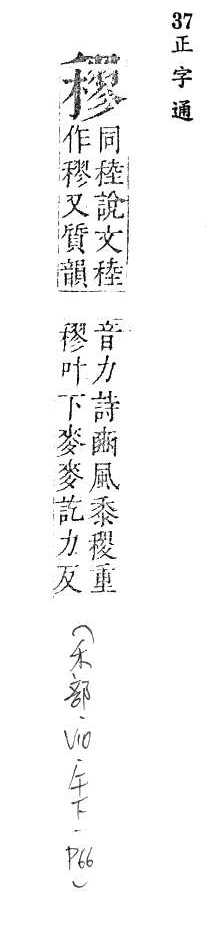 37正字通
穋
同稑說文稑
作穋又質韻
音力詩豳風黍稷重
穋叶下麥麥訖力反
(禾部-V10-午下-P66)